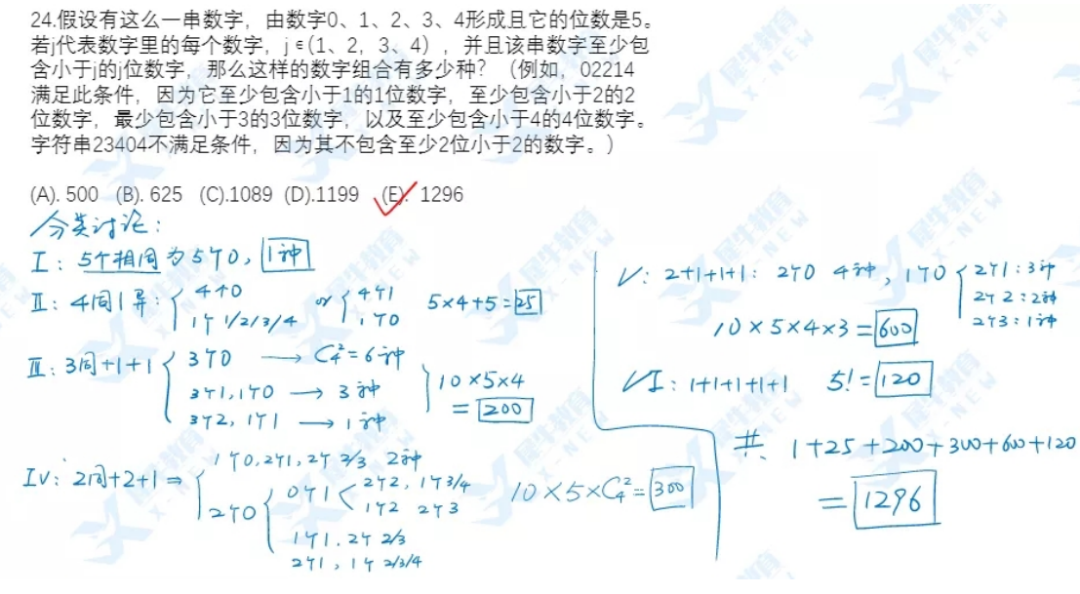 24.假设有这么一串数字，由数字0、1、2、3、4形成且它的位数是5。
若j代表数字里的每个数字，j∈(1、2，3、4），并且该串数字至少包
含小于j的j位数字，那么这样的数字组合有多少种？（例如，02214
满足此条件，因为它至少包含小于1的1位数字，至少包含小于2的2
位数字，最少包含小于3的3位数字，以及至少包含小于4的4位数字。
字符串23404不满足条件，因为其不包含至少2位小于2的数字。）
(A). 500 (B). 625 (C).1089 (D).1199 (E). 1296
分类讨论：
I：5个相同为5个0，1种
II：4同1异：4个0
1个1/2/3/4
or 4个1
1个0
5×4+5=25
III：3同+1+1 3个0 → C₄²=6种
3个1,1个0 → 3种
3个2，1个1 → 1种
10×5×4
=200
IV：2同+2+1 ⇒ 1个0,2个1,2个2/3 2种
2个0
0个1 2个2，1个3/4
1个2 2个3
1个1.2个2/3
2个1，1个2/3/4
10×5×C₄²=300
V：2+1+1+1：2个0 4种，1个0 2个1：3种
2个2：2种
2个3：1种
10×5×4×3=600
VI：1+1+1+1+1 5!=120
共 1+25+200+300+600+120
=1296
犀牛教育
X-NEW